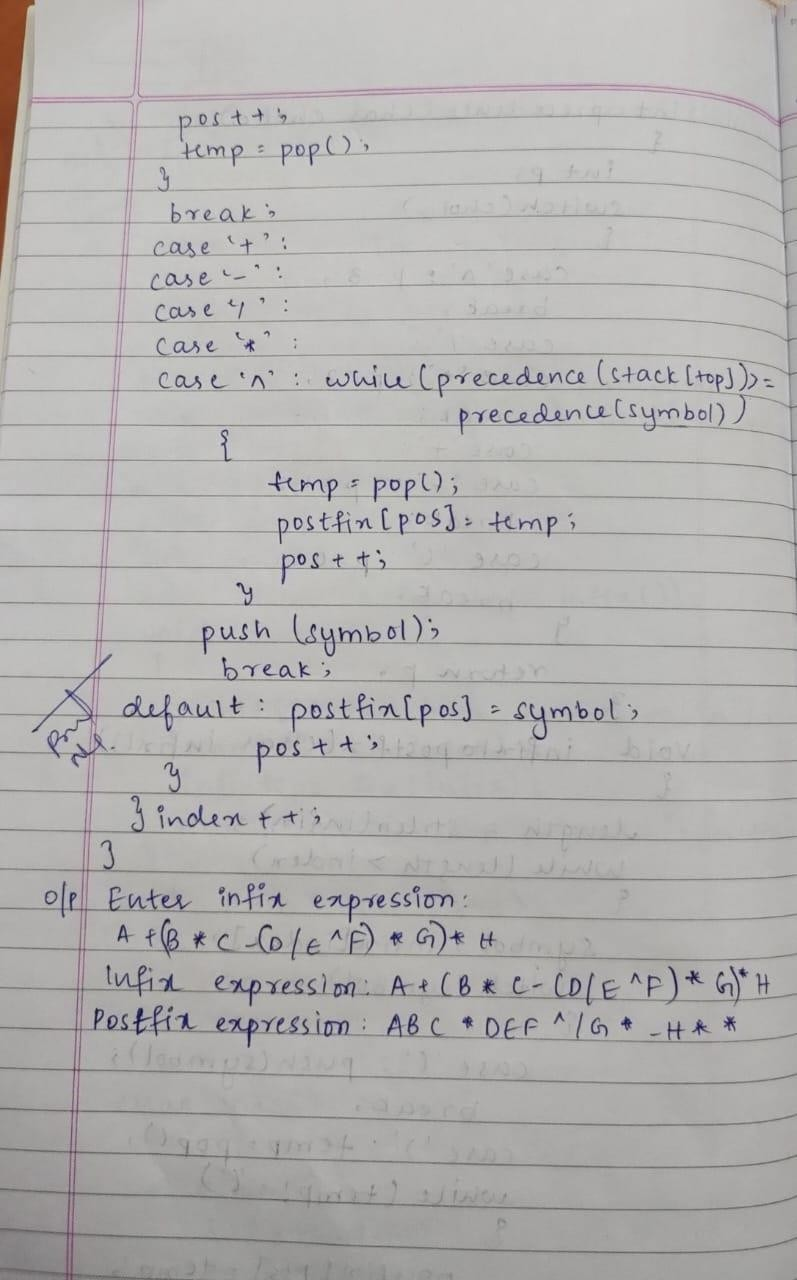 pos++;
temp = pop();
}
break;
case '+' :
case '-' :
case '/' :
case '*' :
case '^' : while (precedence (stack [top]) >=
precedence (symbol))
{
temp = pop();
postfix [pos] = temp;
pos++;
}
push (symbol);
break;
default : postfix [pos] = symbol;
pos++;
}
} index ++;
}
o/p Enter infix expression:
A +(B * C -(D/E^F) * G)* H
Infix expression: A + (B * C - (D/E^F) * G)* H
Postfix expression : ABC * DEF ^/G * -H * *